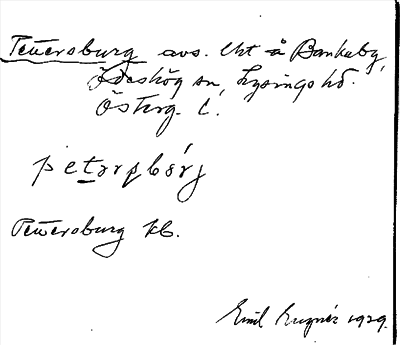 Petersburg avs. lht å Bankeby,
Ödeshög sn, Lysings hd.
Österg. l.
petarsbårj
Petersburg kb.
Emil Lugnér 1929.